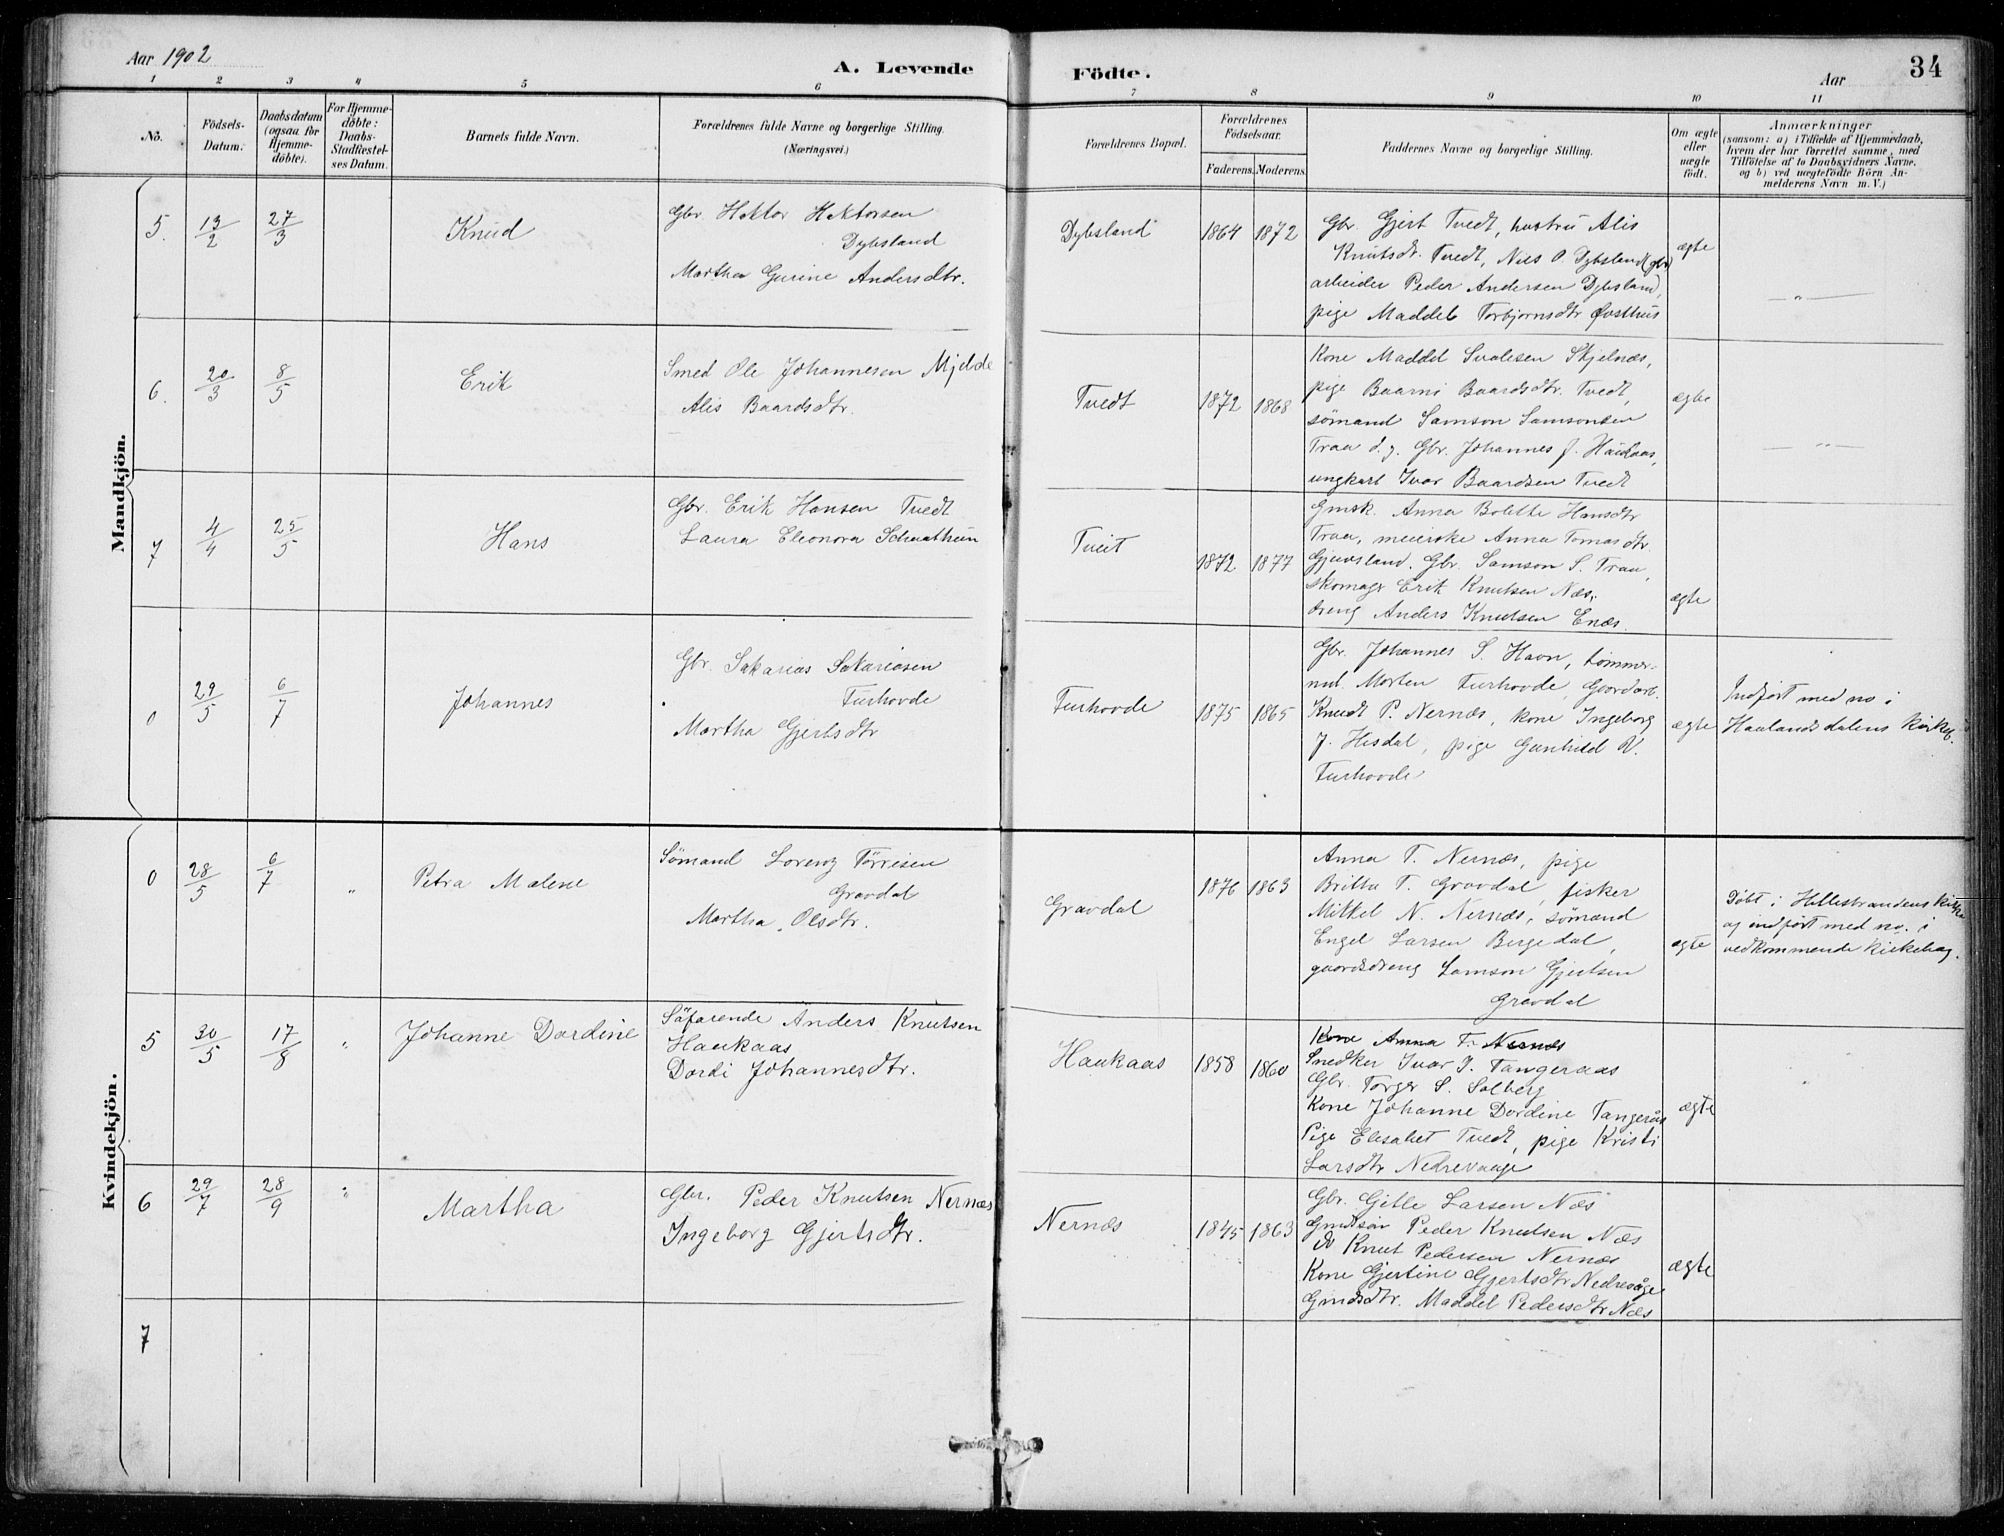 Aar 1902
A. Levende
Födte.
Aar
34
1 2 3 4 5 6 7 8 9 10 11
No.
Födsels-Datum.
Daabsdatum (ogsaa for Hjemmedöbte).
For Hjemmedöbte: Daabs-Stadfæstelses Datum.
Barnets fulde Navn.
Forældrenes fulde Navne og borgerlige Stilling. (Næringsvei.)
Forældrenes Bopæl.
Forældrenes Födselsaar.
Faderens. Moderens.
Faddernes Navne og borgerlige Stilling.
Om ægte eller uægte födt.
Anmærkninger
(saasom: a) i Tilfælde af Hjemmedaab, hvem der har forrettet samme, med Tilföielse af to Daabsvidners Navne, og b) ved uægtefödte Börn Anmelderens Navn m. V.)
Mandkjön.
5. 13/2 27/3 Knud
Gbr. Hektor Hektorsen
Dybsland
Martha Gurine Andersdtr.
Dybsland 1864 1872
Gbr. Gjert Tvedt, hustru Alis
Knutsdt. Tvedt, Nils O. Dybsland (gbr)
arbeider Peder Andersen Dybsland,
pige Maddel Torbjornsdtr Østhus
ægte
— " —
6. 20/3 8/5 Erik
Smed Ole Johannesen Mjelde
Alis Baardsdtr.
Tvedt 1872 1868
Kone Maddel Svalesen Skjelnæs,
pige Baarni Baardsdtr. Tvedt,
sömand Samson Samsonsen
Traa d.y. Gbr. Johannes J. Haukaas,
ungkarl Ivar Baardsen Tvedt
ægte
— " —
7 4/4 25/5 Hans
Gbr. Erik Hansen Tvedt
Laura Eleonora Schaathun
Tveit 1872 1877
Gmsk. Anna Bolette Hansdtr
Traa, meierske Anna Tomasdtr.
Gjuvsland. Gbr. Samson S. Traa,
skomagr Erik Knutsen Næs,
dreng Anders Knudsen Enæs.
ægte
0 29/5 6/7 Johannes
Gbr. Sakarias Sakariasen
Furhovde
Martha Gjertsdtr
Furhovde 1875 1865
Gbr. Johannes S. Havn, tömmer-
md. Morten Furhovde, Gaardarb.
Knudt P. Nernæs, kone Ingeborg
J. Hisdal, pige Gunhild N.
Furhovde
ægte
Indført med no i
Haalandsdalens kirkeb.
Kvindekjön.
0 28/5 6/7 " Petra Malene
Sömand Lorenz Törrisen
Gravdal
Martha Olsdtr.
Gravdal 1876 1863
Anna T. Nernæs, pige
Britta T. Gravdal, fisker
Mikkel N. Nernæs, sömand
Engel Larsen Bergedal,
gaardsdreng Samson Gjertsen
Gravdal
ægte
Døbt i Hillestrandens kirke
og indført med no. i
vedkommende kirkebog.
5 30/5 17/8 " Johanne Dordine
Söfarende Anders Knutsen
Haukaas
Dordi Johannesdtr.
Haukaas 1858 1860
Kone Anna T. Nernæs
Snedker Ivar J. Tangeraas
Gbr. Torger S. Solberg
Kone Johanne Dordine Tangerås
Pige Elesabet Tvedt, pige Kristi
Larsdtr Nedrevaage
ægte
6 29/7 28/9 " Martha
Gbr. Peder Knutsen Nernæs
Ingeborg Gjertsdtr.
Nernæs 1845 1863
Gbr. Gitle Larsen Næs
Gmdsön Peder Knudsen Næs
do Knut Pedersen Nernæs
Kone Gjertine Gjertsdtr Nedrevåge
Gmdsdtr. Maddel Pedersdtr Næs
ægte
7